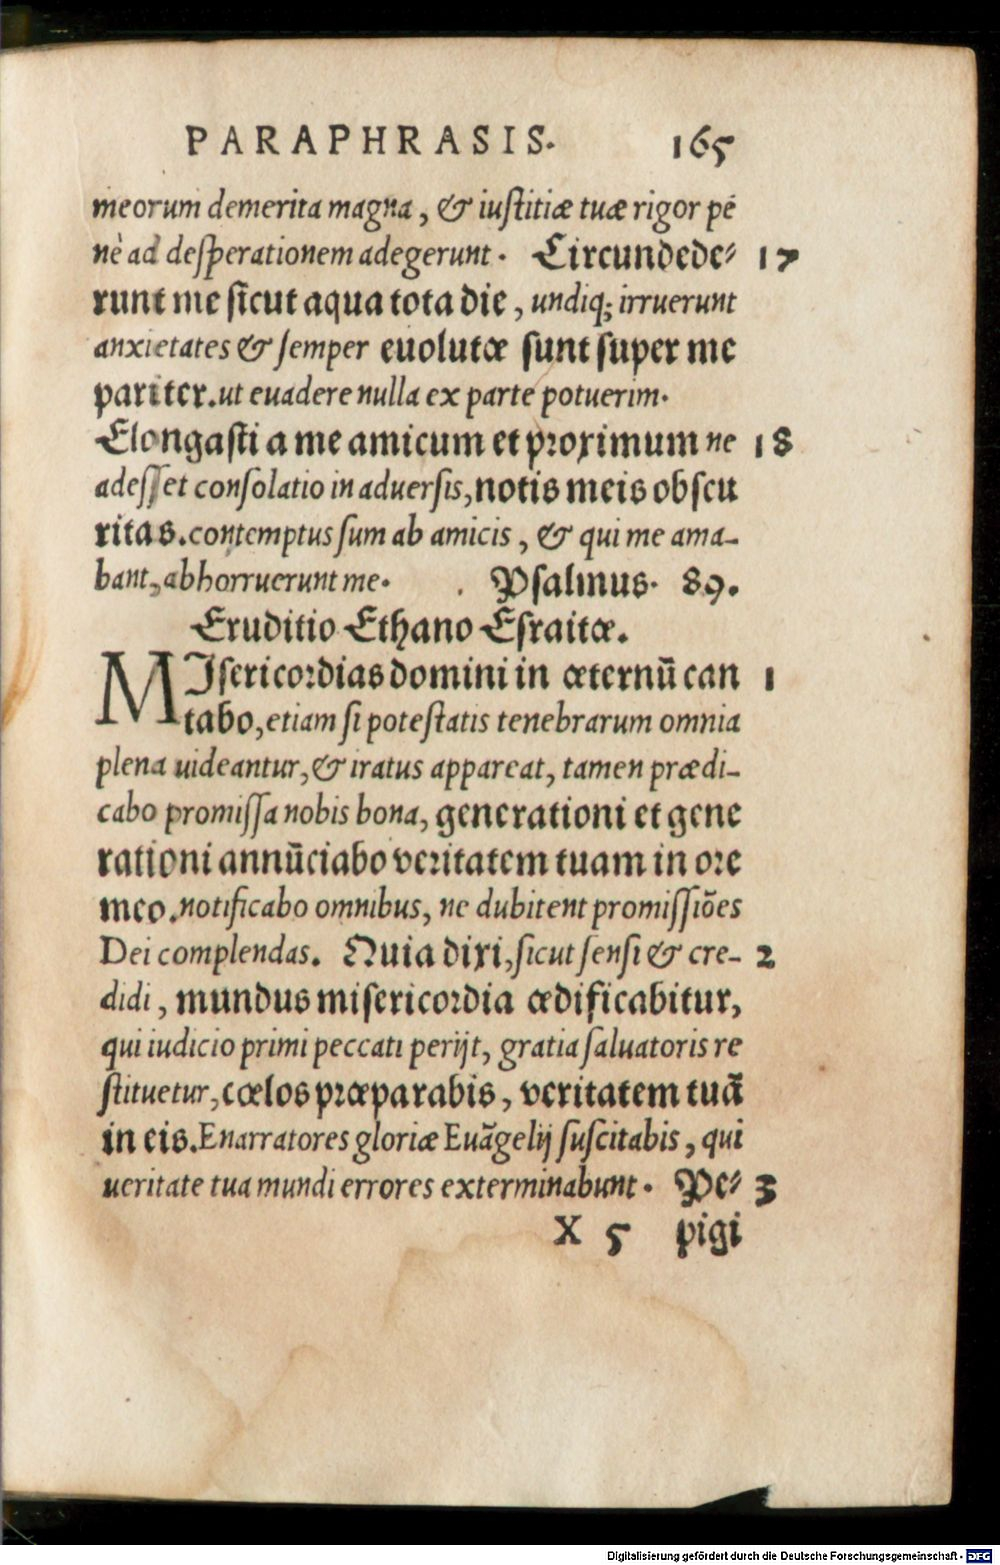 PARAPHRASIS. 165
meorum demerita magna, & iuſtitiæ tuæ rigor pe
nè ad deſperationem adegerunt. Circundede- 17
runt me ſicut aqua tota die, undiq; irruerunt
anxietates & ſemper euolutæ ſunt ſuper me
pariter. ut euadere nulla ex parte potuerim.
Elongaſti a me amicum et proximum ne 18
adeſſet conſolatio in aduerſis, notis meis obſcu
ritas. contemptus ſum ab amicis, & qui me ama-
bant, abhorruerunt me. Pſalmus. 89.
Eruditio Ethano Eſraitæ.
MIſericordias domini in æternũ can 1
tabo, etiam ſi poteſtatis tenebrarum omnia
plena uideantur, & iratus appareat, tamen prædi-
cabo promiſſa nobis bona, generationi et gene
rationi annũciabo veritatem tuam in ore
meo. notificabo omnibus, ne dubitent promiſſiões
Dei complendas. Quia dixi, ſicut ſenſi & cre- 2
didi, mundus miſericordia ædificabitur,
qui iudicio primi peccati perijt, gratia ſaluatoris re
ſtituetur, cælos præparabis, veritatem tuã
in eis. Enarratores gloriæ Euãgelij ſuſcitabis, qui
ueritate tua mundi errores exterminabunt. Pe- 3
X 5 pigi
Digitalisierung gefördert durch die Deutsche Forschungsgemeinschaft - DFG